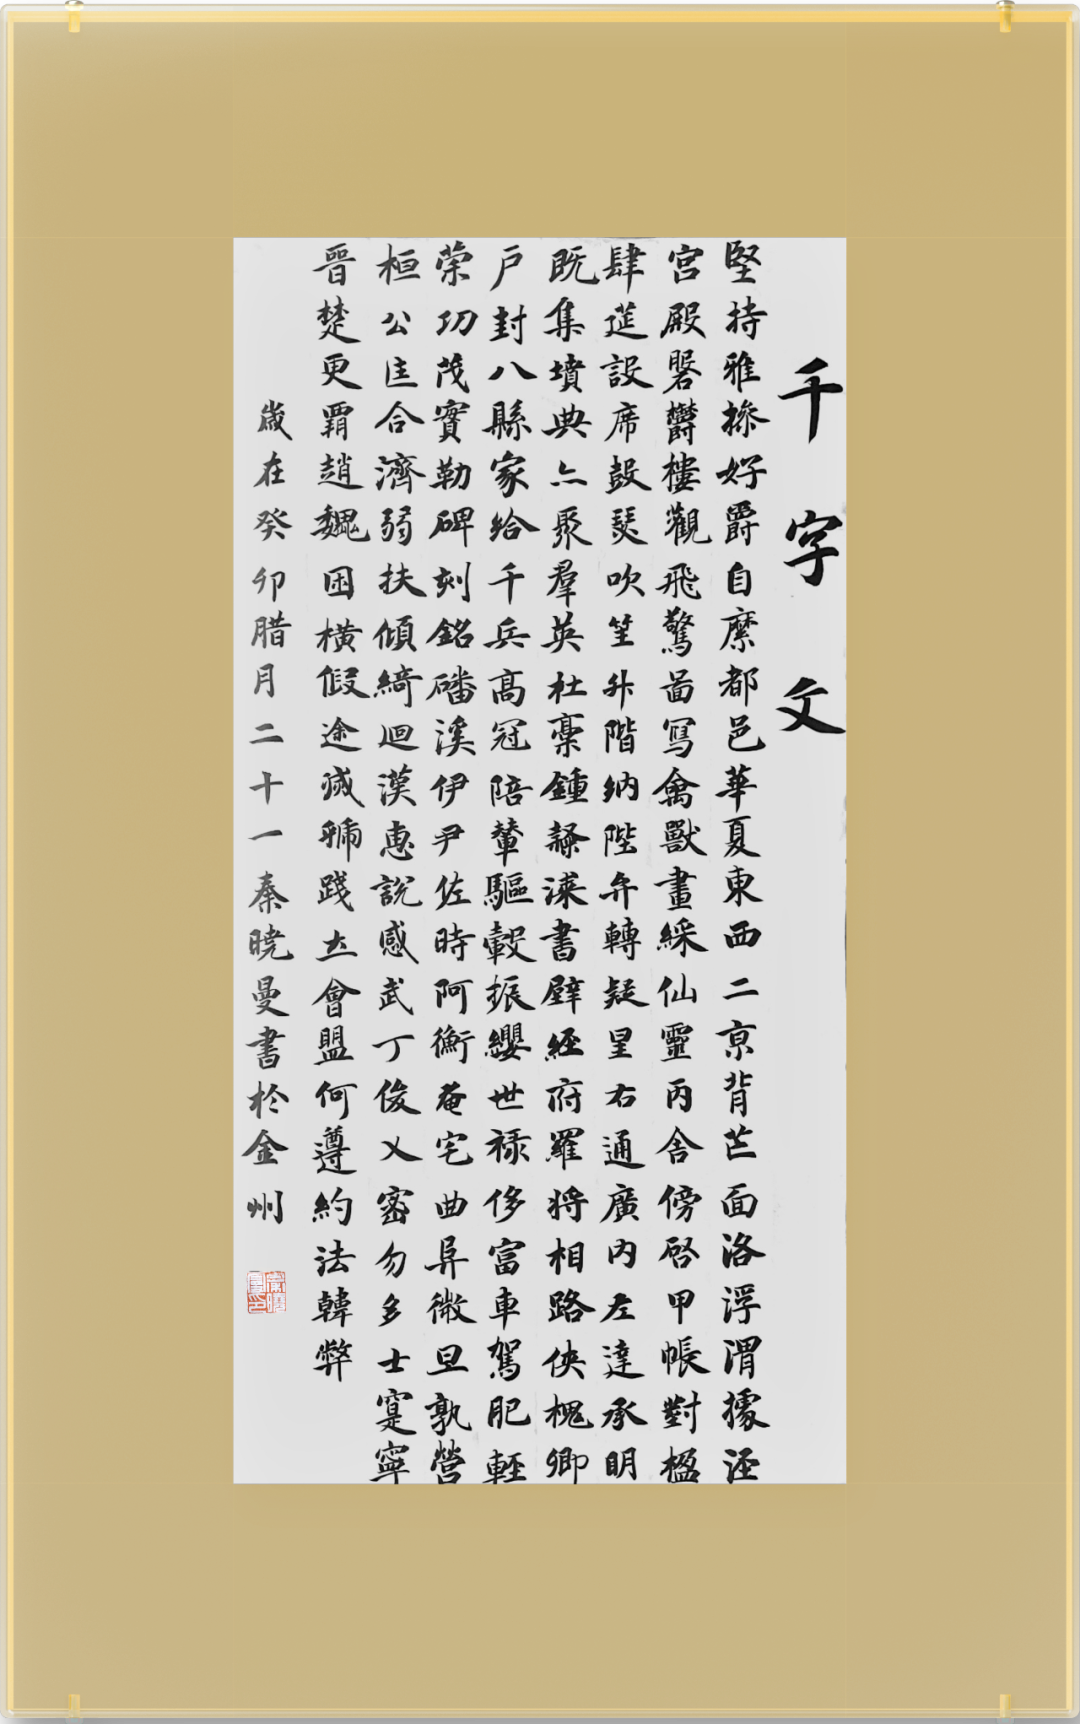 千字文
堅持雅操好爵自縻都邑華夏東西二京背芒面洛浮渭據涇
宮殿磐鬱樓觀飛驚圖寫禽獸畫綵仙靈丙舍傍啓甲帳對楹
肆筵設席鼓瑟吹笙升階納陛弁轉疑星右通廣内左達承明
既集墳典亦聚羣英杜稾鍾隸漆書壁經府羅將相路俠槐卿
戶封八縣家給千兵高冠陪輦驅轂振纓世祿侈富車駕肥輕
策功茂實勒碑刻銘磻溪伊尹佐時阿衡奄宅曲阜微旦孰營
桓公匡合濟弱扶傾綺迴漢惠說感武丁俊乂密勿多士寔寧
晉楚更霸趙魏困橫假途滅虢踐土會盟何遵約法韓弊
歲在癸卯腊月二十一秦曉曼書於金州